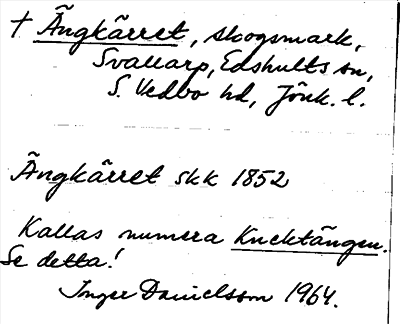 † Ängkärret, skogsmark,
Svallarp, Edshults sn,
S. Vedbo hd, Jönk. l.
Ängkärret skk 1852
Kallas numera Knektängen.
Se detta!
Inger Danielsson 1964.